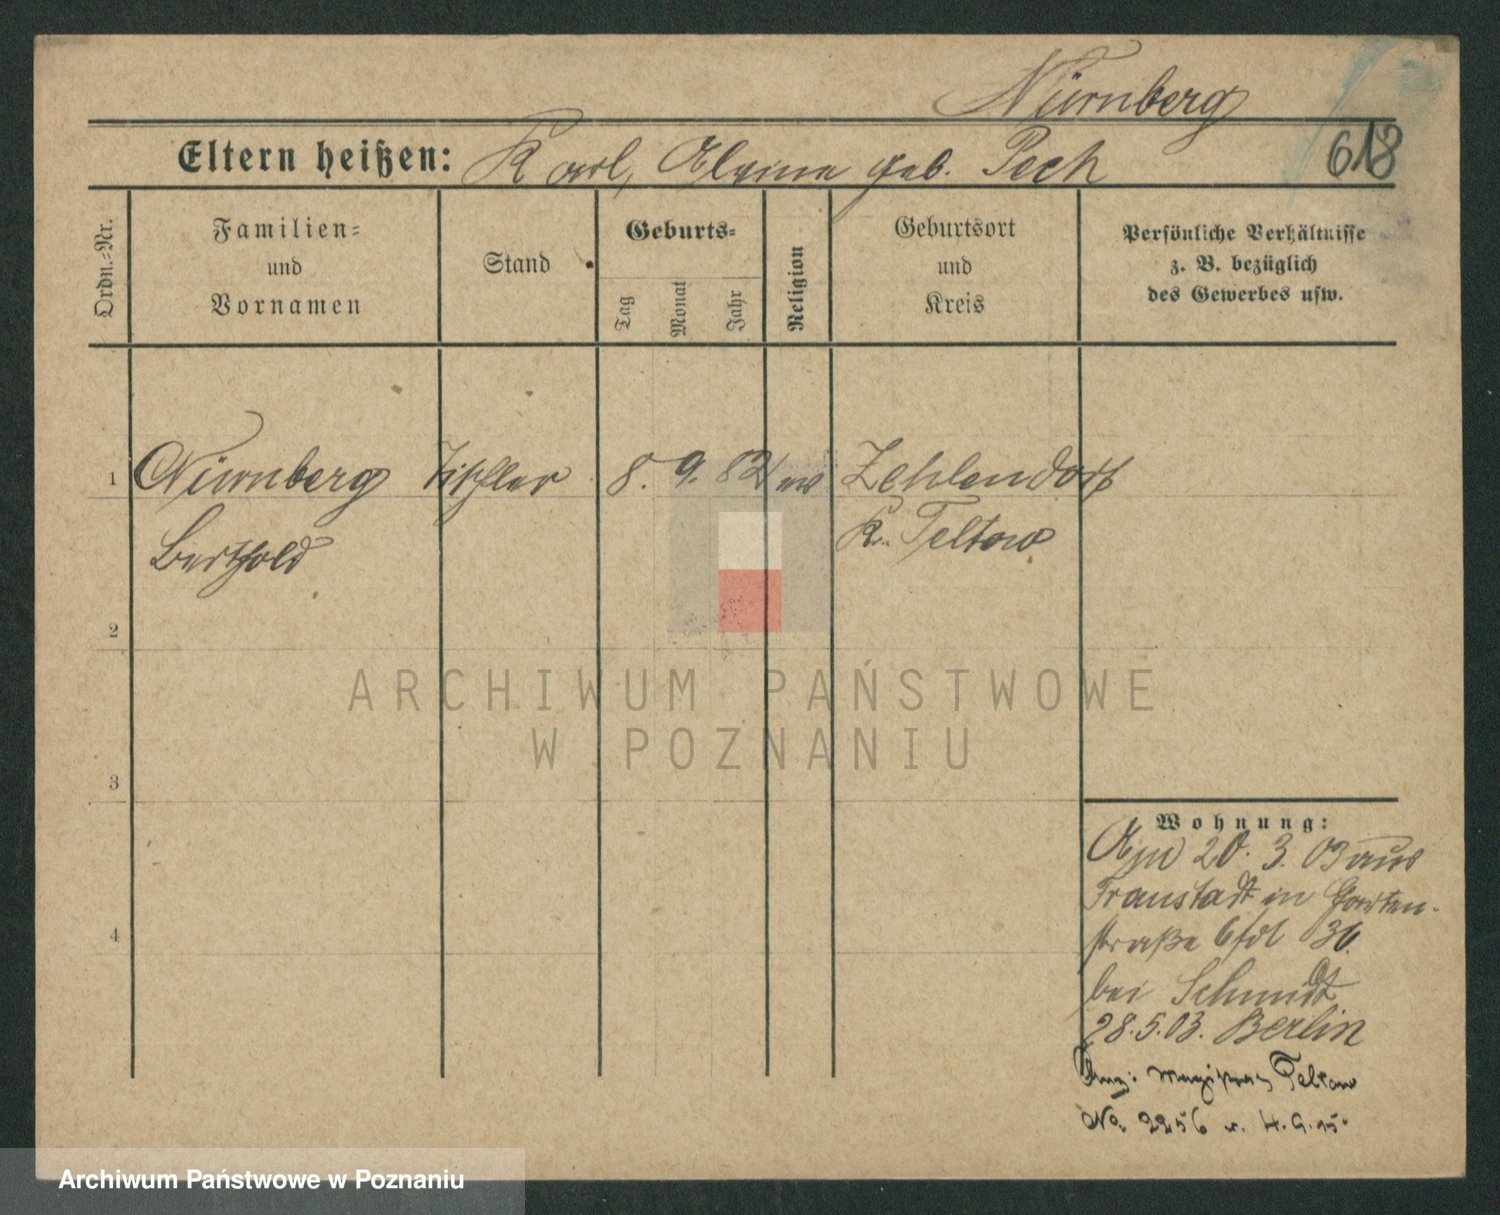 Nürnberg
Eltern heißen: Karl, Alvine geb. Pech
618
Ordn.-Nr.
Familien-
und
Vornamen
Stand
Geburts-
Tag
Monat
Jahr
Religion
Geburtsort
und
Kreis
Persönliche Verhältnisse
z. B. bezüglich
des Gewerbes usw.
1 Nürnberg Tischler 8. 9. 82 ev Zehlendorf
Berthold Kr. Teltow
2
3
4
ARCHIWUM PAŃSTWOWE
W POZNANIU
Wohnung:
20. 3. 03 aus
Fraustadt in Garten-
straße 6 36.
bei Schmidt
28.5.03. Berlin
Magistrat Teltow
No. 2256 v. 4.9.15.
Archiwum Państwowe w Poznaniu